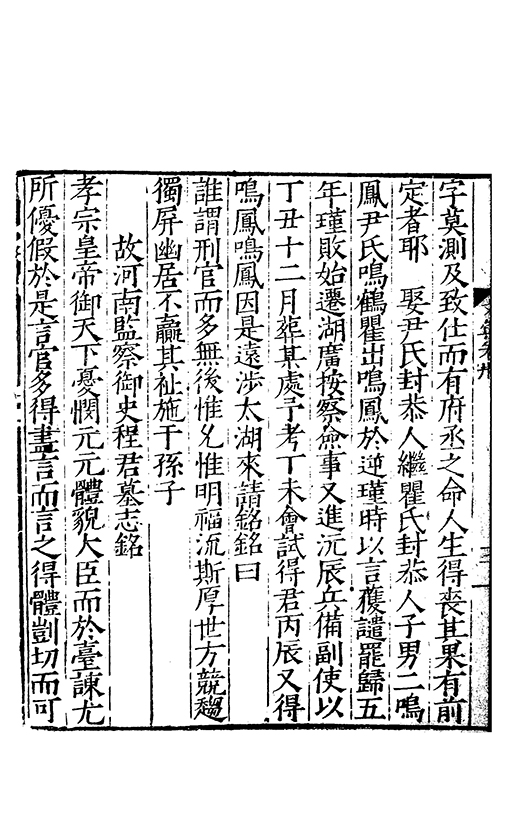 字莫測及致仕而有府丞之命人生得喪其果有前
定者耶　娶尹氏封恭人繼瞿氏封恭人子男二鳴
鳳尹氏鳴鶴瞿出鳴鳳於逆瑾時以言獲譴罷歸五
年瑾敗始遷湖廣按察僉事又進沅辰兵備副使以
丁丑十二月葬某處予考丁未會試得君丙辰又得
鳴鳳鳴鳳因是遠涉太湖來請銘銘曰
誰謂刑官而多無後惟允惟明福流斯厚世方競趨
獨屏幽居不羸其祉施于孫子
故河南監察御史程君墓志銘
孝宗皇帝御天下憂憫元元體貌大臣而於臺諫尤
所優假於是言官多得盡言而言之得體剴切而可